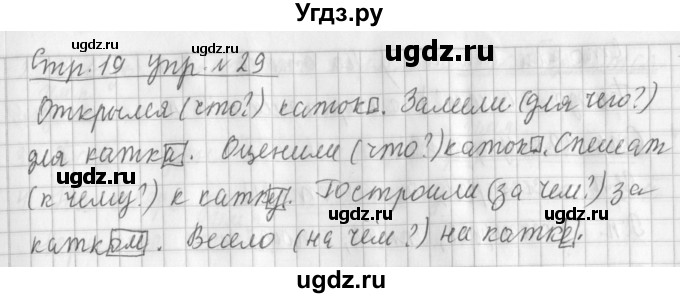 Угдз.ру
Стр. 19 упр. № 29
Открылся (что?) каток. Залили (для чего?)
для катка. Оценили (что?) каток. Спешат
(к чему?) к катку. Построили (за чем?) за
катком. Весело (на чем?) на катке.
ugdz.ru
ugdz.ru
ugdz.ru
ugdz.ru
ugdz.ru
ugdz.ru
ugdz.ru
ugdz.ru
ugdz.ru
ugdz.ru
ugdz.ru
ugdz.ru